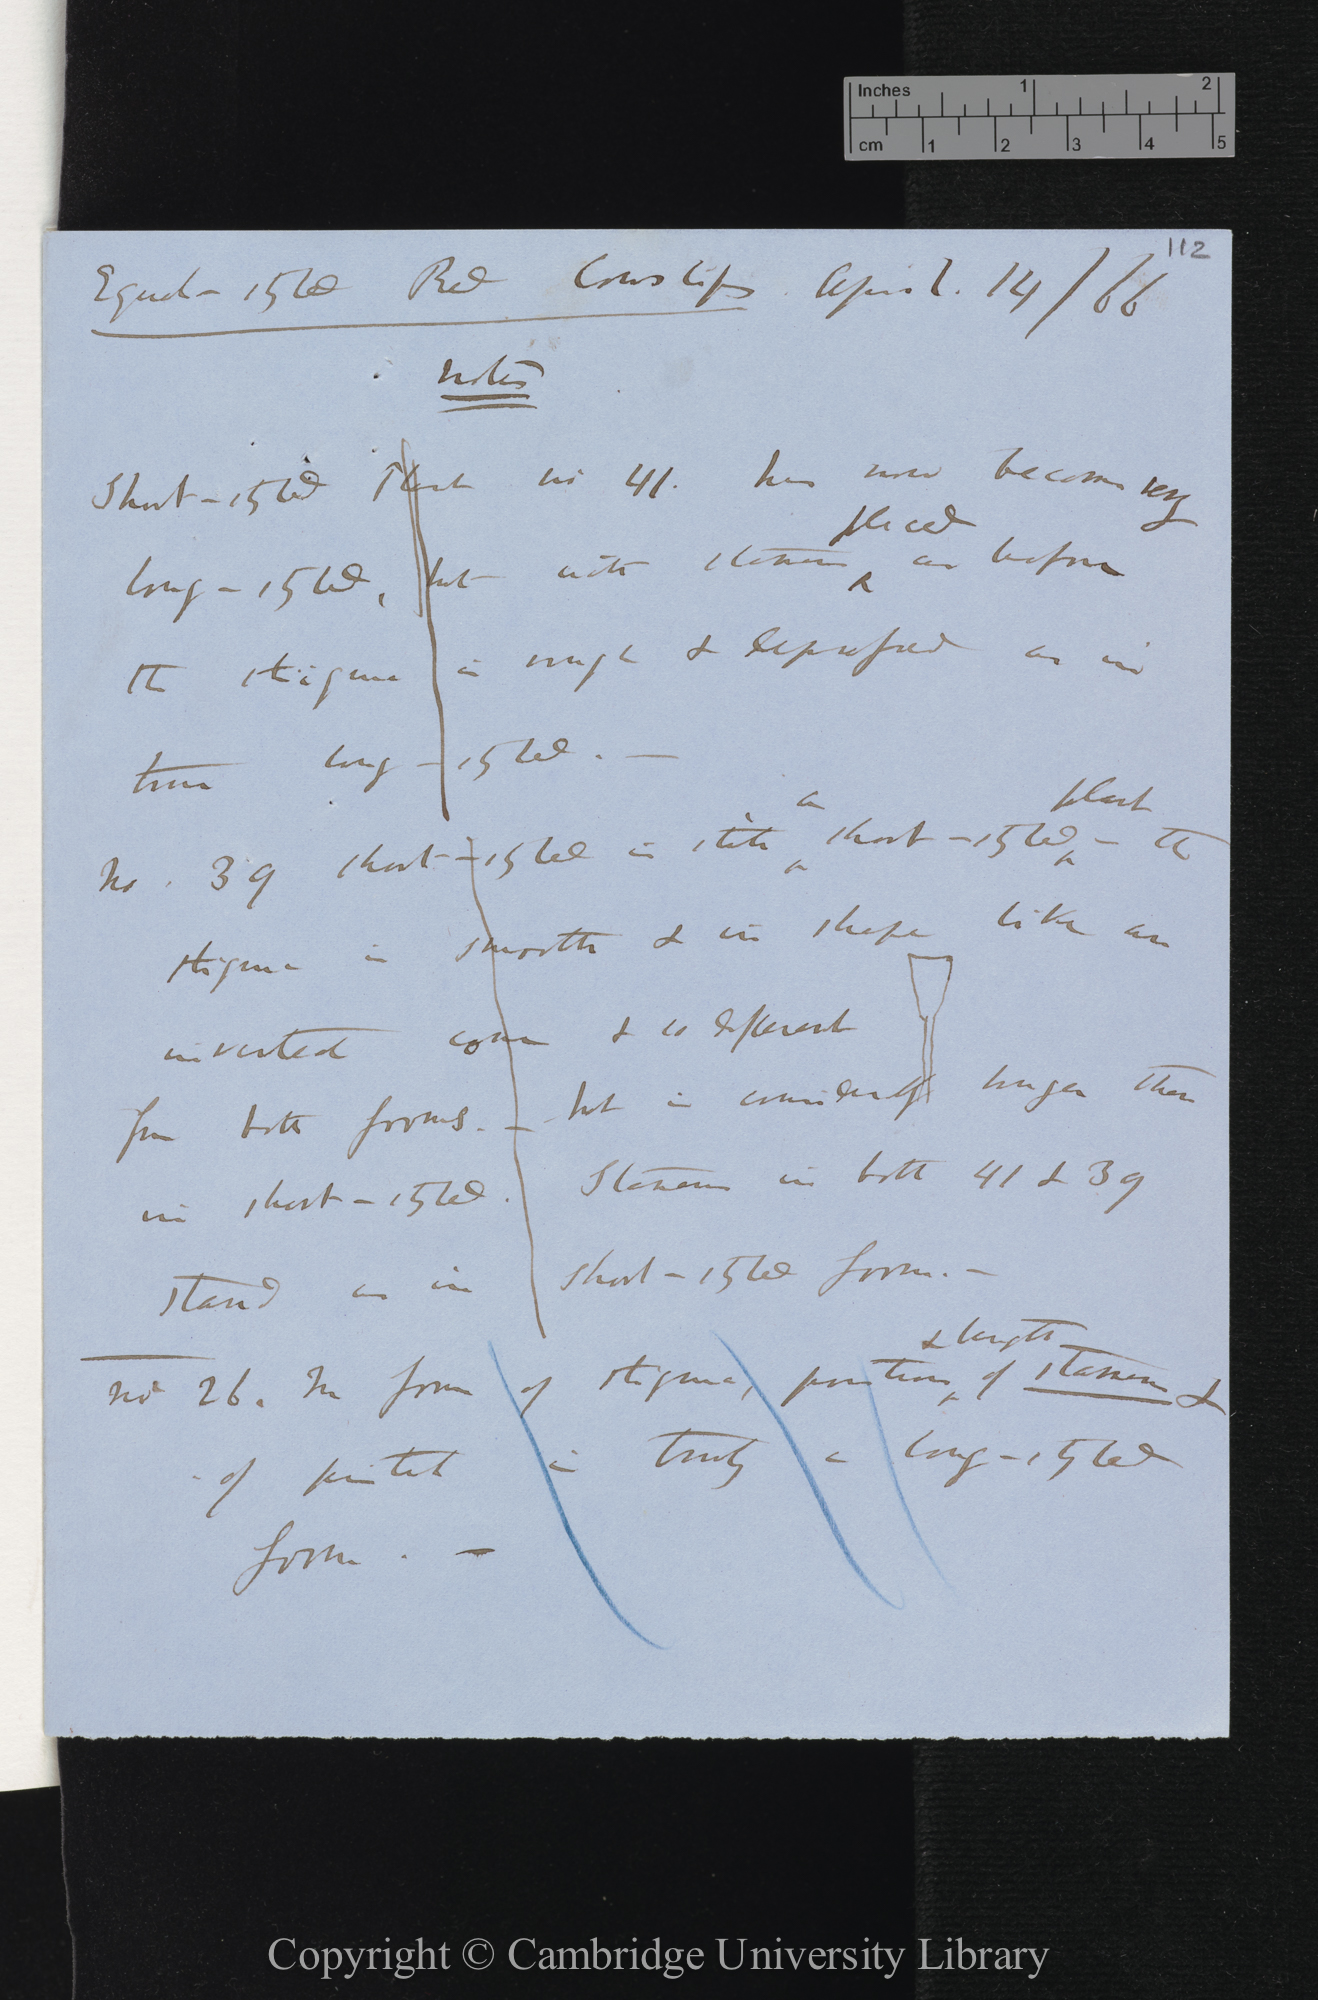 Inches 1 2
cm 1 2 3 4 5
112
Equal-styled Red Cowslips April. 14/66
notes
Short-styled Plant no 41. has now become very
long-styled, but with stamens placed as before
the stigma is rough & depressed as in
true long-styled. —
No. 39 short-styled is still a short-styled plant — the
stigma is smooth & in shape like an
inverted cone & so different
from both forms. — but is considerably longer than
in short-styled. Stamens in both 41 & 39
stand as in short-styled form. —
No 26. In form of stigma, position & length of stamens &
of pistil is truly a long-styled
form. —
Copyright © Cambridge University Library